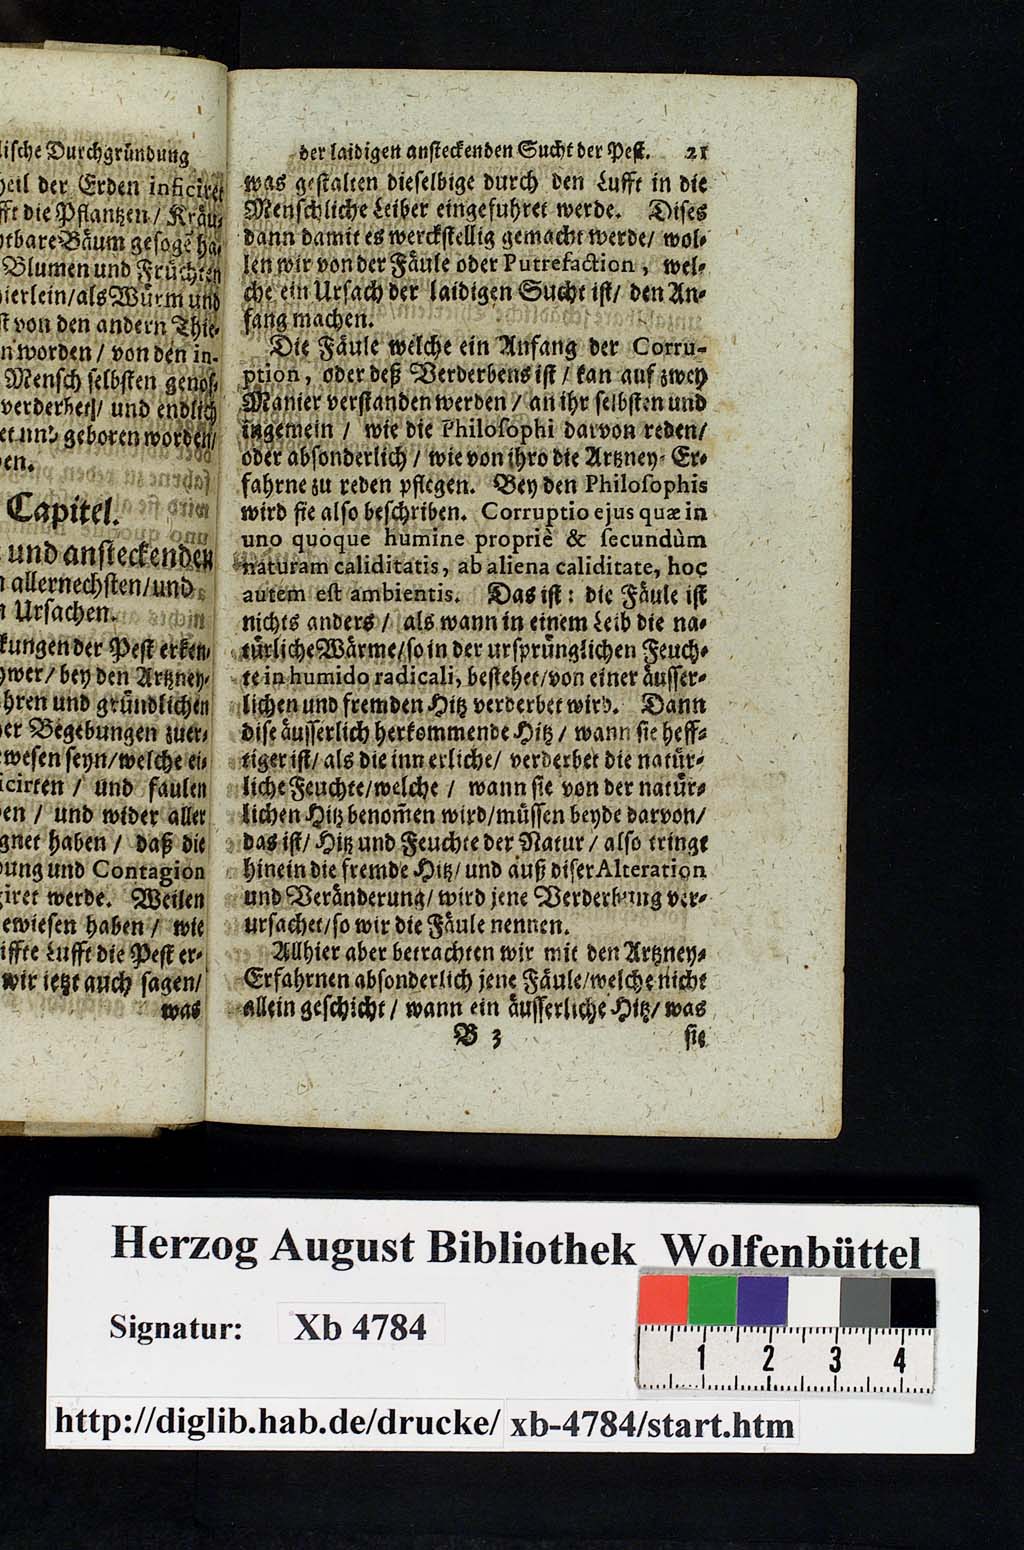 lische Durchgründung
heil der Erden inficiret
fft die Pflantzen / Kräu-
htbare Bäum gesogē ha-
Blumen und Früchten
hierlein / als Würm und
st von den andern Thie-
n worden / von den in-
Mensch selbsten genos-
verderbet / und endlich
et und geboren worden /
en.
Capitel.
und ansteckenden
n allernechsten / und
n Ursachen.
kungen der Pest erken-
hwer / bey den Artzney-
hren und gründlichen
er Begebungen zuer-
wesen seyn / welche ei-
icirten / und faulen
en / und wider aller
gnet haben / daß die
bung und Contagion
giret werde. Weilen
ewiesen haben / wie
iffte Lufft die Pest er-
wir jetzt auch sagen /
was
der laidigen ansteckenden Sucht der Pest. 21
was gestalten dieselbige durch den Lufft in die
Menschliche Leiber eingefuhret werde. Dises
dann damit es werckstellig gemacht werde / wol-
len wir von der Fäule oder Putrefaction, wel-
che ein Ursach der laidigen Sucht ist / den An-
fang machen.
Die Fäule welche ein Anfang der Corru-
ption, oder deß Verderbens ist / kan auf zwey
Manier verstanden werden / an ihr selbsten und
ingemein / wie die Philosophi darvon reden /
oder absonderlich / wie von ihro die Artzney-Er-
fahrne zu reden pflegen. Bey den Philosophis
wird sie also beschriben. Corruptio ejus quæ in
uno quoque humine propriè & secundùm
naturam caliditatis, ab aliena caliditate, hoc
autem est ambientis. Das ist: die Fäule ist
nichts anders / als wann in einem Leib die na-
türliche Wärme / so in der ursprünglichen Feuch-
te in humido radicali, bestehet / von einer äusser-
lichen und fremden Hitz verderbet wird. Dann
dise äusserlich herkommende Hitz / wann sie heff-
tiger ist / als die innerliche / verderbet die natür-
liche Feuchte / welche / wann sie von der natür-
lichen Hitz benom̄en wird / müssen beyde darvon /
das ist / Hitz und Feuchte der Natur / also tringt
hinein die fremde Hitz / und auß diser Alteration
und Veränderung / wird jene Verderbung ver-
ursachet / so wir die Fäule nennen.
Allhier aber betrachten wir mit den Artzney-
Erfahrnen absonderlich jene Fäule / welche nicht
allein geschicht / wann ein äusserliche Hitz / was
B 3 sie
Herzog August Bibliothek Wolfenbüttel
Signatur: Xb 4784
1 2 3 4
http://diglib.hab.de/drucke/ xb-4784/start.htm